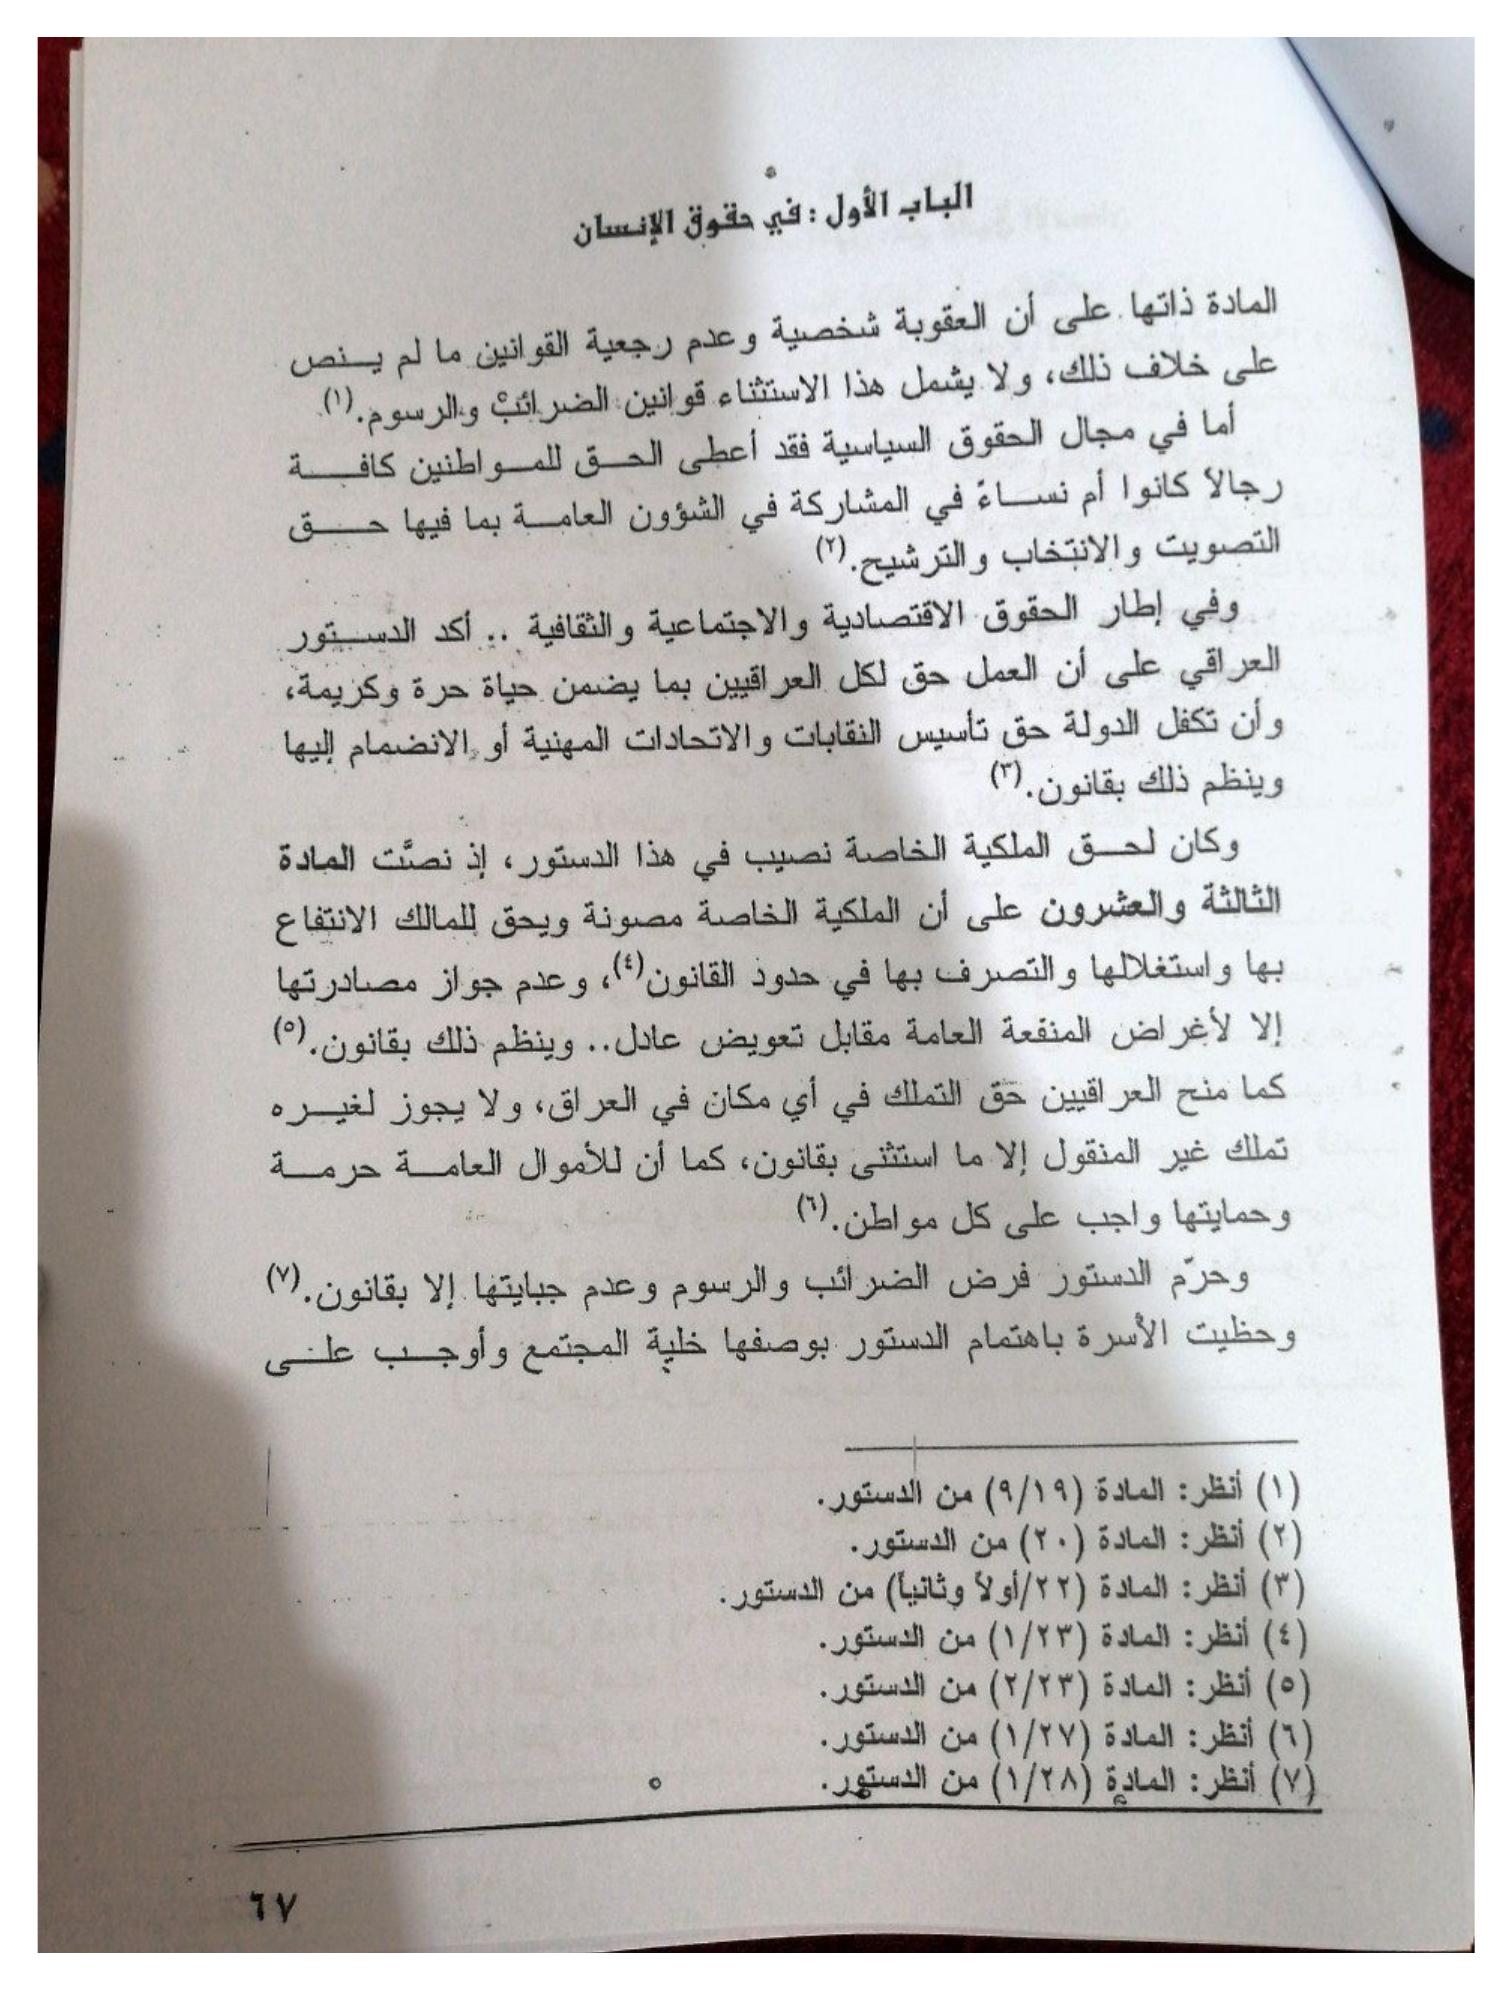 الباب الأول : في حقوق الإنسان
المادة ذاتها على أن العقوبة شخصية وعدم رجعية القوانين ما لم ينص
على خلاف ذلك، ولا يشمل هذا الاستثناء قوانين الضرائب والرسوم.(١)
أما في مجال الحقوق السياسية فقد أعطى الحق للمواطنين كافة
رجالاً كانوا أم نساءً في المشاركة في الشؤون العامة بما فيها حق
التصويت والانتخاب والترشيح.(٢)
وفي إطار الحقوق الاقتصادية والاجتماعية والثقافية .. أكد الدستور
العراقي على أن العمل حق لكل العراقيين بما يضمن حياة حرة وكريمة،
وأن تكفل الدولة حق تأسيس النقابات والاتحادات المهنية أو الانضمام إليها
وينظم ذلك بقانون.(٣)
وكان لحق الملكية الخاصة نصيب في هذا الدستور، إذ نصَّت المادة
الثالثة والعشرون على أن الملكية الخاصة مصونة ويحق للمالك الانتفاع
بها واستغلالها والتصرف بها في حدود القانون(٤)، وعدم جواز مصادرتها
إلا لأغراض المنفعة العامة مقابل تعويض عادل.. وينظم ذلك بقانون.(٥)
كما منح العراقيين حق التملك في أي مكان في العراق، ولا يجوز لغيره
تملك غير المنقول إلا ما استثنى بقانون، كما أن للأموال العامة حرمة
وحمايتها واجب على كل مواطن.(٦)
وحرّم الدستور فرض الضرائب والرسوم وعدم جبايتها إلا بقانون.(٧)
وحظيت الأسرة باهتمام الدستور بوصفها خلية المجتمع وأوجب على
(١) أنظر: المادة (٩/١٩) من الدستور.
(٢) أنظر: المادة (٢٠) من الدستور.
(٣) أنظر: المادة (٢٢/أولاً وثانياً) من الدستور.
(٤) أنظر: المادة (١/٢٣) من الدستور.
(٥) أنظر: المادة (٢/٢٣) من الدستور.
(٦) أنظر: المادة (١/٢٧) من الدستور.
(٧) أنظر: المادة (١/٢٨) من الدستور.
٦٧